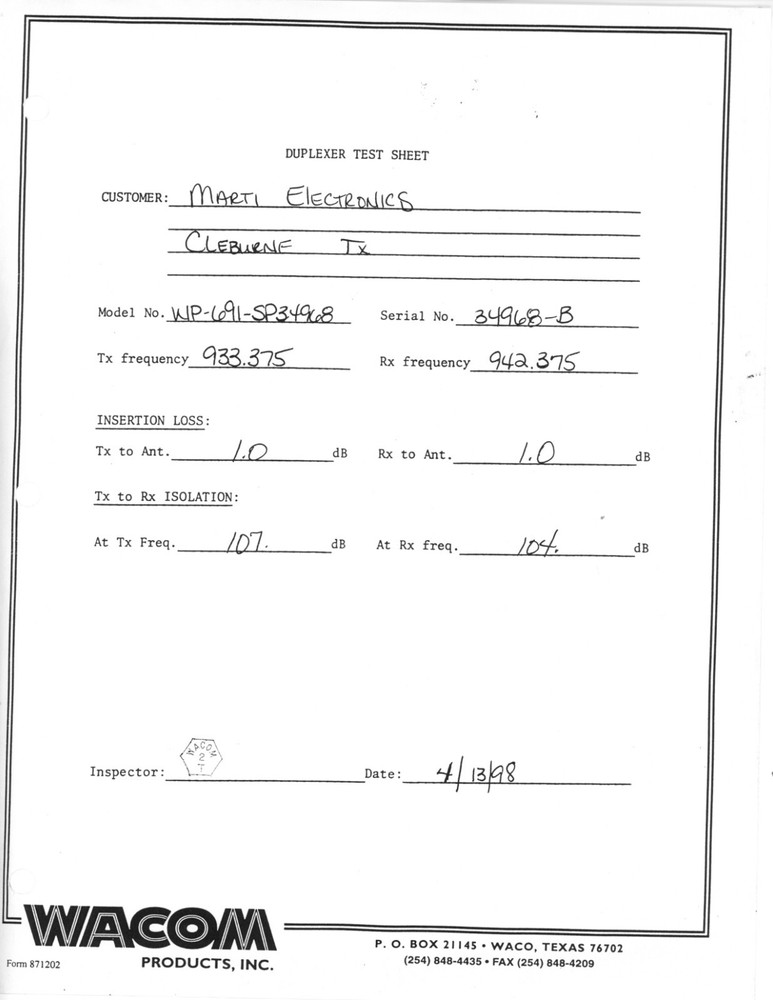 DUPLEXER TEST SHEET
CUSTOMER: MARTI ELECTRONICS
CLEBURNE TX
Model No. WP-691-SP34968 Serial No. 34968-B
Tx frequency 933.375 Rx frequency 942.375
INSERTION LOSS:
Tx to Ant. 1.0 dB Rx to Ant. 1.0 dB
Tx to Rx ISOLATION:
At Tx Freq. 107. dB At Rx freq. 104. dB
WACOM
2
T
Inspector: Date: 4/13/98
WACOM
PRODUCTS, INC.
P. O. BOX 21145 • WACO, TEXAS 76702
(254) 848-4435 • FAX (254) 848-4209
Form 871202